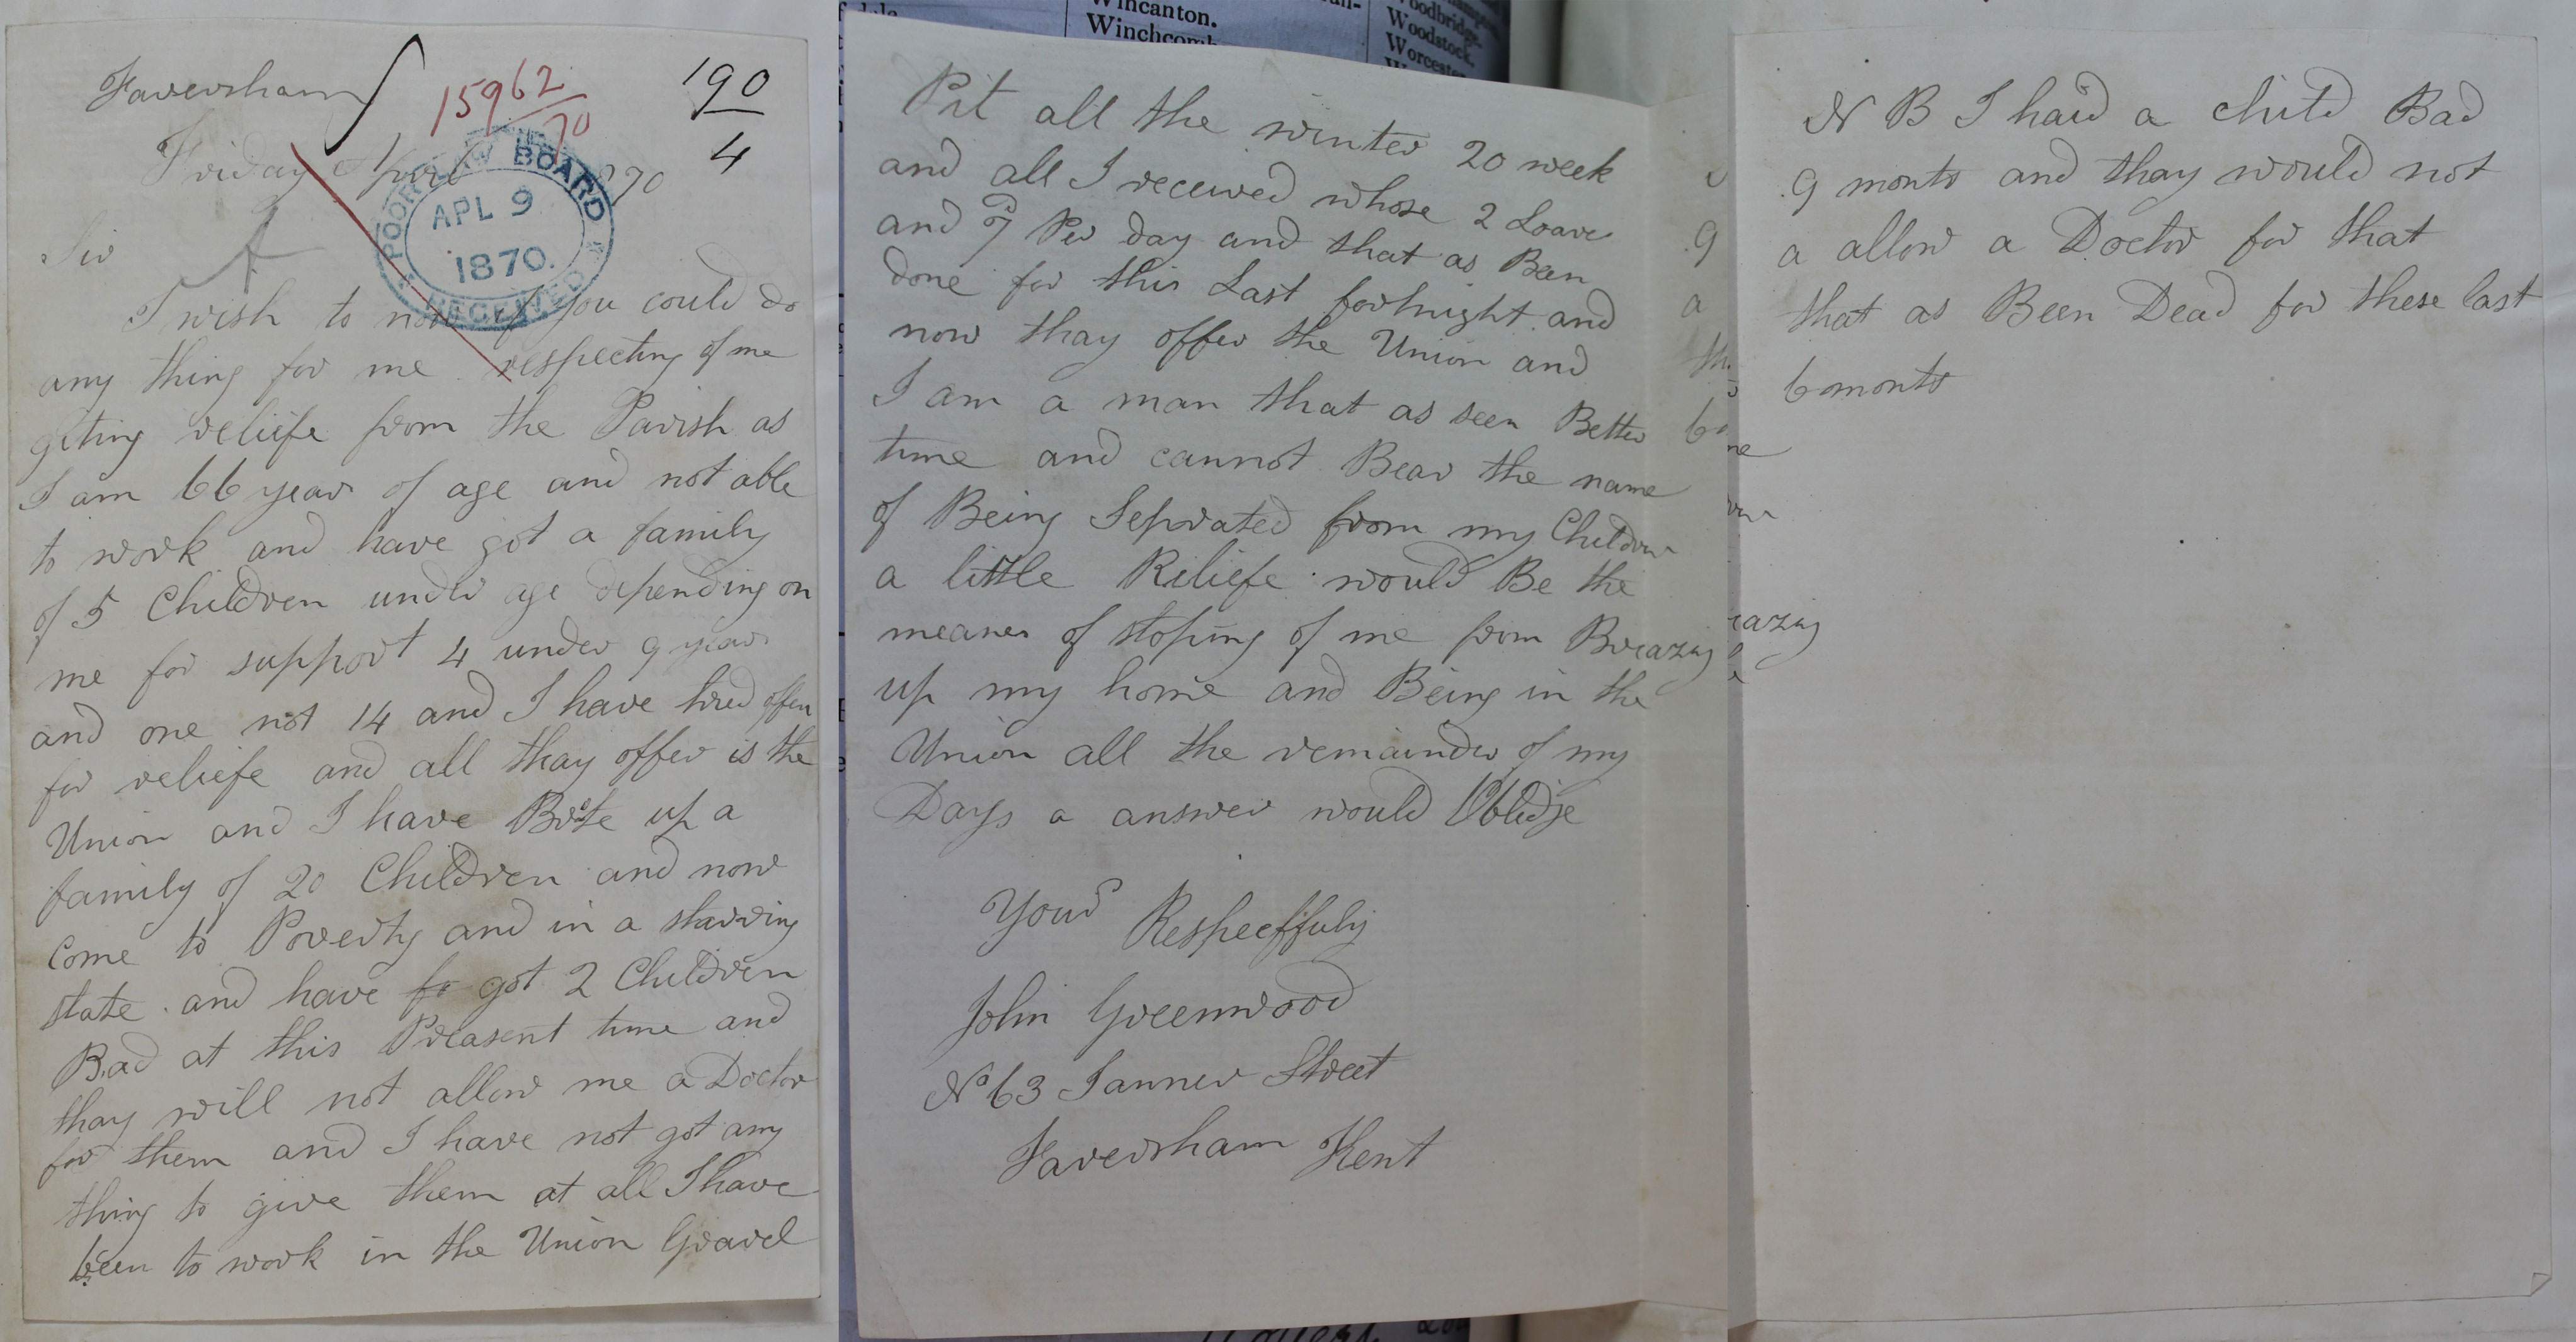 Faversham
15962/70
190
4
Friday April 1870
POOR LAW BOARD
APL 9
1870
RECEIVED
Sir
I wish to now if you could do
any thing for me respecting of me
geting reliefe from the Parish as
I am 66 year of age and not able
to work and have got a family
of 5 Children under age depending on
me for support 4 under 9 year
and one not 14 and I have tried offen
for reliefe and all thay offer is the
Union and I have Brote up a
family of 20 Children and now
Come to Poverty and in a starving
state. and have fo got 2 Children
Bad at this Preasent time and
thay will not allow me a Doctor
for them and I have not got any
thing to give them at all I have
been to work in the Union Gravel
Wincanton.
Winchcomb
Woodbridge.
Woodstock.
Worcester
Pit all the winter 20 week
and all I received whose 2 Loave
and 7d Per day and that as Been
done for this Last fortnight. and
now thay offer the Union and
I am a man that as seen Better
time and cannot Bear the name
of Being Seprated from my Children
a little Reliefe would Be the
meanes of stoping of me from Breazing
up my home and Being in the
Union all the remainder of my
Days a answer would Obledje
Yours Respecffuly
John Greenwood
No 63 Tanner Street
Faversham Kent
N B I haid a child Bad
9 monts and thay would not
a allow a Doctor for that
that as Been Dead for these last
6 monts